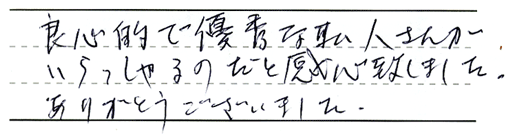 良心的で優秀な私人さんが
いらっしゃるのだと感心致しました。
ありがとうございました。